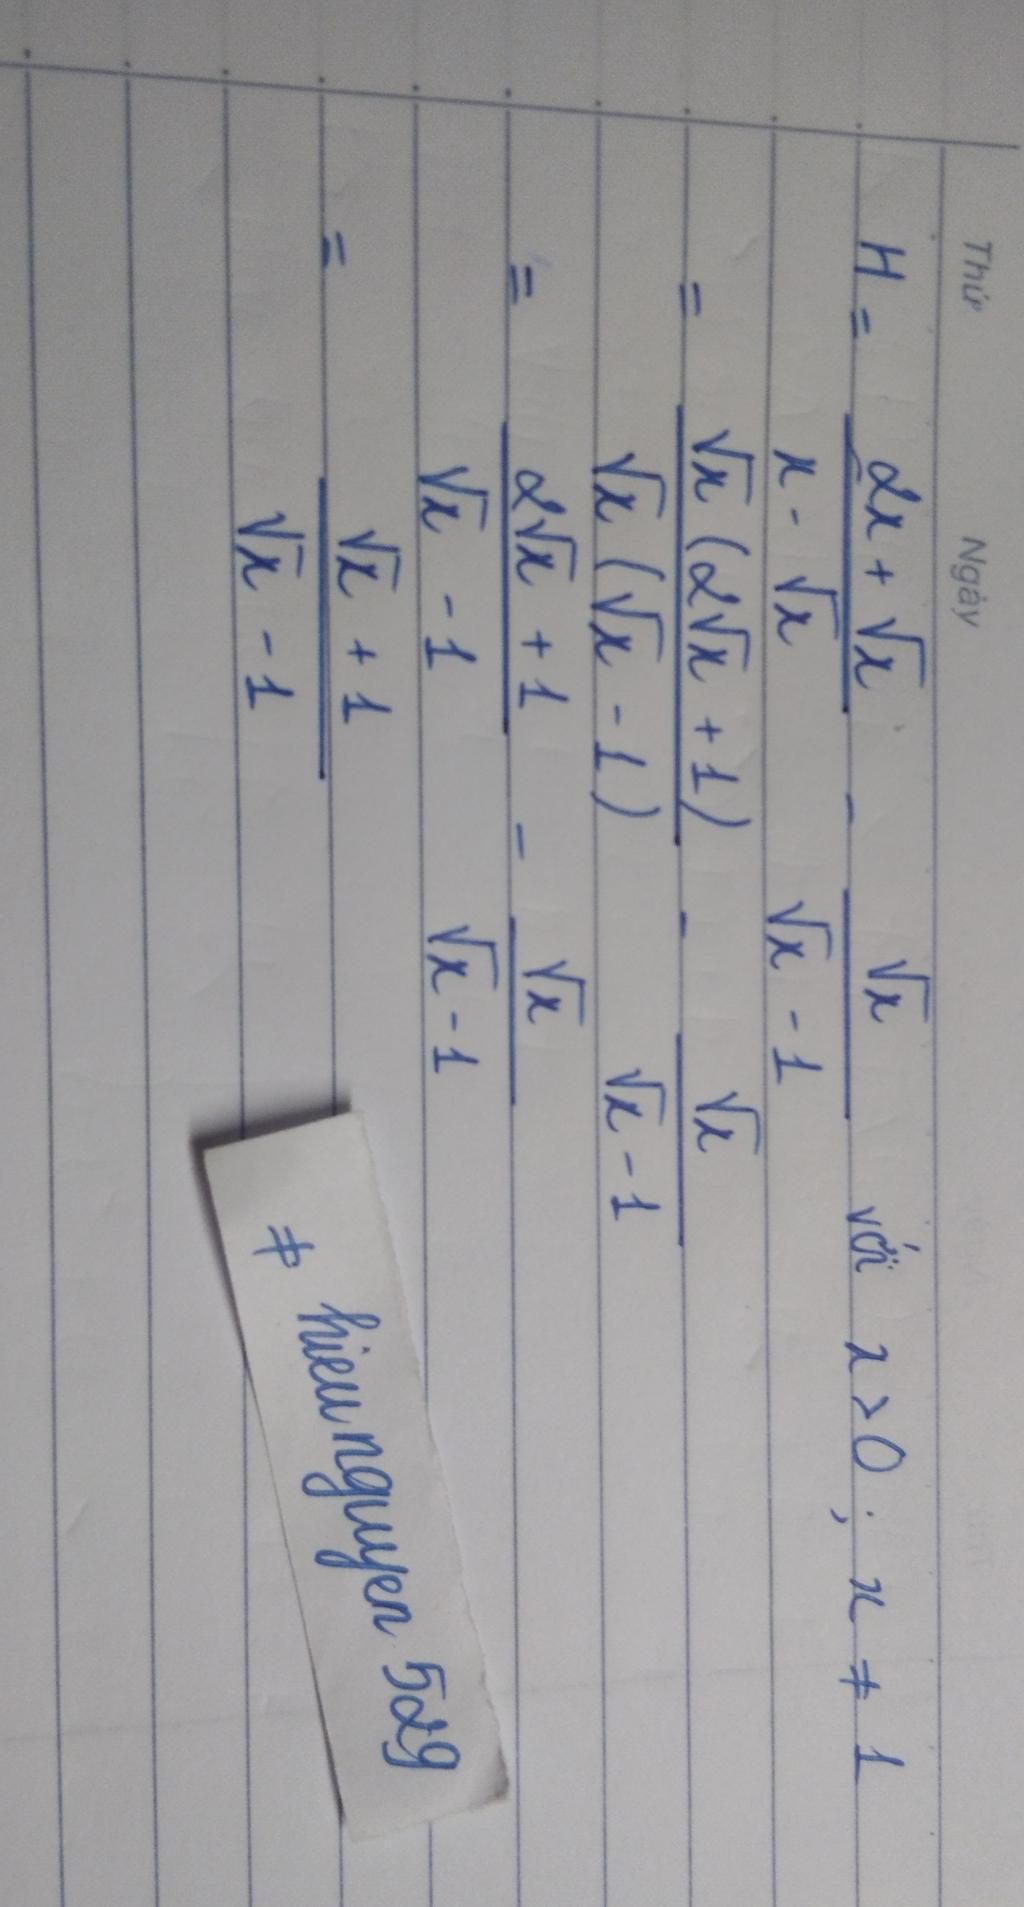 Thứ Ngày
H = \frac{2x + \sqrt{x}}{x - \sqrt{x}} - \frac{\sqrt{x}}{\sqrt{x} - 1} với x > 0 ; x ≠ 1
= \frac{\sqrt{x} (2\sqrt{x} + 1)}{\sqrt{x} (\sqrt{x} - 1)} - \frac{\sqrt{x}}{\sqrt{x} - 1}
= \frac{2\sqrt{x} + 1}{\sqrt{x} - 1} - \frac{\sqrt{x}}{\sqrt{x} - 1}
= \frac{\sqrt{x} + 1}{\sqrt{x} - 1}
# hieunguyen 529